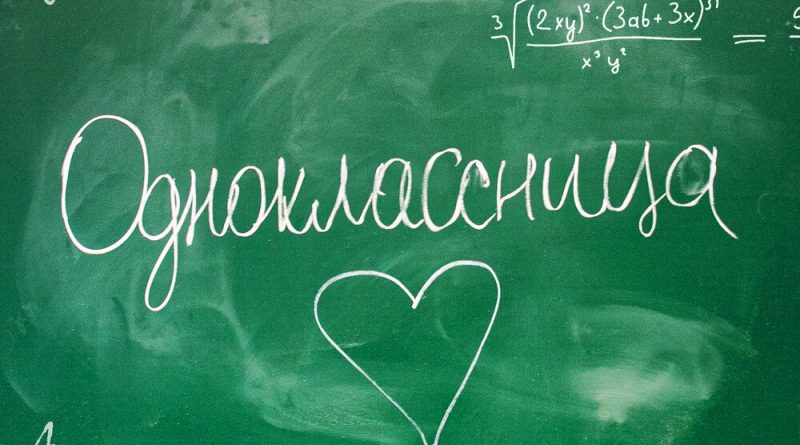 ∛((2xy)²·(3ab+3x)³¹)/(x³y²) =
Одноклассница